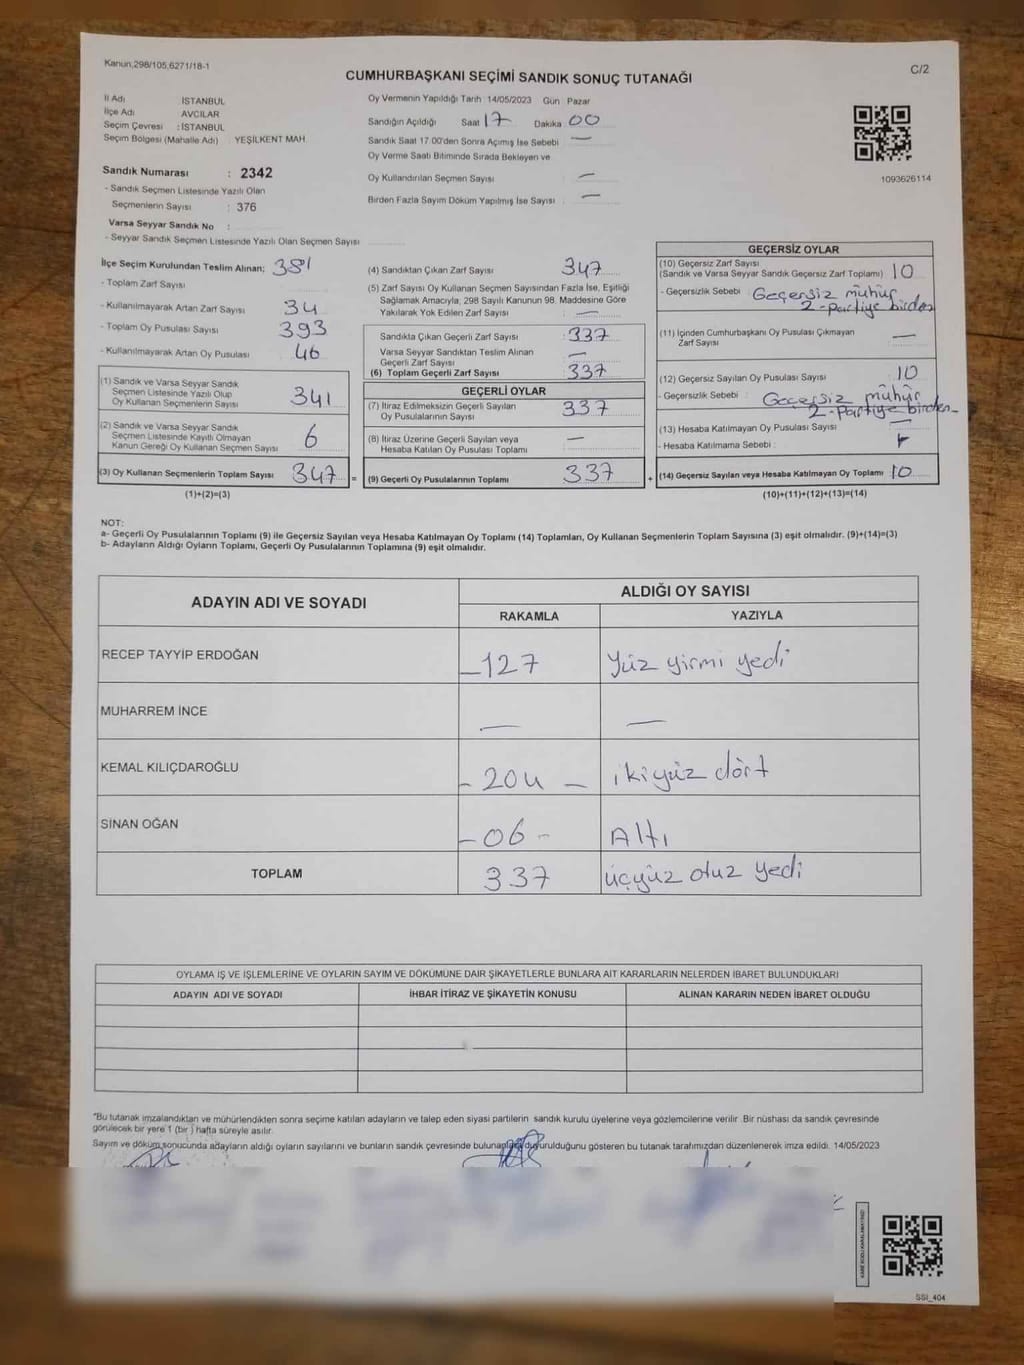 Kanun,298/105,6271/18-1
C/2
CUMHURBAŞKANI SEÇİMİ SANDIK SONUÇ TUTANAĞI
İl Adı İSTANBUL
İlçe Adı AVCILAR
Seçim Çevresi : İSTANBUL
Seçim Bölgesi (Mahalle Adı) YEŞİLKENT MAH
Oy Vermenin Yapıldığı Tarih 14/05/2023 Gün Pazar
Sandığın Açıldığı Saat 17 Dakika 00
Sandık Saat 17.00'den Sonra Açımış İse Sebebi —
Oy Verme Saati Bitiminde Sırada Bekleyen ve
Oy Kullandırılan Seçmen Sayısı : —
Birden Fazla Sayım Döküm Yapılmış İse Sayısı : —
1093626114
Sandık Numarası : 2342
- Sandık Seçmen Listesinde Yazılı Olan
Seçmenlerin Sayısı : 376
Varsa Seyyar Sandık No :
- Seyyar Sandık Seçmen Listesinde Yazılı Olan Seçmen Sayısı
İlçe Seçim Kurulundan Teslim Alınan; 381
- Toplam Zarf Sayısı
- Kullanılmayarak Artan Zarf Sayısı 34
- Toplam Oy Pusulası Sayısı 393
- Kullanılmayarak Artan Oy Pusulası 46
(1) Sandık ve Varsa Seyyar Sandık
Seçmen Listesinde Yazılı Olup
Oy Kullanan Seçmenlerin Sayısı 341
(2) Sandık ve Varsa Seyyar Sandık
Seçmen Listesinde Kayıtlı Olmayan
Kanun Gereği Oy Kullanan Seçmen Sayısı 6
(3) Oy Kullanan Seçmenlerin Toplam Sayısı 347 =
(1)+(2)=(3)
(4) Sandıktan Çıkan Zarf Sayısı 347
(5) Zarf Sayısı Oy Kullanan Seçmen Sayısından Fazla İse, Eşitliği
Sağlamak Amacıyla, 298 Sayılı Kanunun 98. Maddesine Göre
Yakılarak Yok Edilen Zarf Sayısı : —
Sandıkta Çıkan Geçerli Zarf Sayısı 337
Varsa Seyyar Sandıktan Teslim Alınan
Geçerli Zarf Sayısı —
(6) Toplam Geçerli Zarf Sayısı 337
GEÇERLİ OYLAR
(7) İtiraz Edilmeksizin Geçerli Sayılan
Oy Pusulalarının Sayısı 337
(8) İtiraz Üzerine Geçerli Sayılan veya
Hesaba Katılan Oy Pusulası Toplamı —
(9) Geçerli Oy Pusulalarının Toplamı 337 +
GEÇERSİZ OYLAR
(10) Geçersiz Zarf Sayısı
(Sandık ve Varsa Seyyar Sandık Geçersiz Zarf Toplamı) 10
- Geçersizlik Sebebi : Geçersiz mühür
2-partiye birden
(11) İçinden Cumhurbaşkanı Oy Pusulası Çıkmayan
Zarf Sayısı —
(12) Geçersiz Sayılan Oy Pusulası Sayısı 10
- Geçersizlik Sebebi : Geçersiz mühür
2-Partiye birden
(13) Hesaba Katılmayan Oy Pusulası Sayısı —
- Hesaba Katılmama Sebebi :
(14) Geçersiz Sayılan veya Hesaba Katılmayan Oy Toplamı 10
(10)+(11)+(12)+(13)=(14)
NOT:
a- Geçerli Oy Pusulalarının Toplamı (9) ile Geçersiz Sayılan veya Hesaba Katılmayan Oy Toplamı (14) Toplamları, Oy Kullanan Seçmenlerin Toplam Sayısına (3) eşit olmalıdır. (9)+(14)=(3)
b- Adayların Aldığı Oyların Toplamı, Geçerli Oy Pusulalarının Toplamına (9) eşit olmalıdır.
ADAYIN ADI VE SOYADI
ALDIĞI OY SAYISI
RAKAMLA YAZIYLA
RECEP TAYYİP ERDOĞAN -127 Yüz yirmi yedi
MUHARREM İNCE — —
KEMAL KILIÇDAROĞLU - 204 - ikiyüz dört
SİNAN OĞAN -06- Altı
TOPLAM 337 üçyüz otuz yedi
OYLAMA İŞ VE İŞLEMLERİNE VE OYLARIN SAYIM VE DÖKÜMÜNE DAİR ŞİKAYETLERLE BUNLARA AİT KARARLARIN NELERDEN İBARET BULUNDUKLARI
ADAYIN ADI VE SOYADI İHBAR İTİRAZ VE ŞİKAYETİN KONUSU ALINAN KARARIN NEDEN İBARET OLDUĞU
"Bu tutanak imzalandıktan ve mühürlendikten sonra seçime katılan adayların ve talep eden siyasi partilerin sandık kurulu üyelerine veya gözlemcilerine verilir. Bir nüshası da sandık çevresinde
görülecek bir yere 1 (bir) hafta süreyle asılır.
Sayım ve döküm sonucunda adayların aldığı oyların sayılarını ve bunların sandık çevresinde duyurulduğunu gösteren bu tutanak tarafımızdan düzenlenerek imza edildi. 14/05/2023
SSI_404